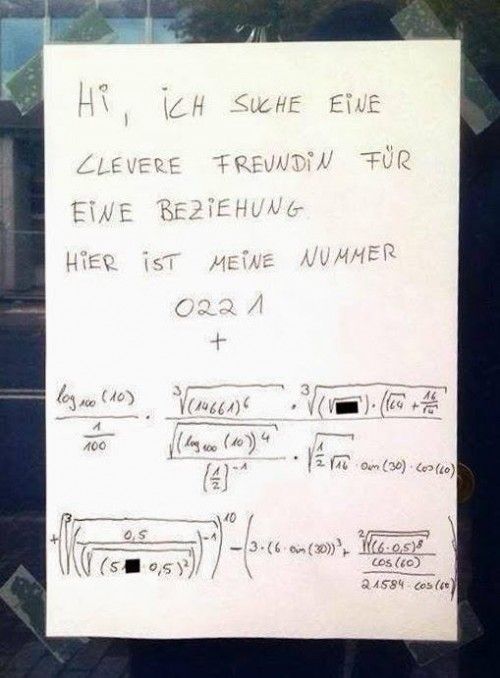 Hi, ICH SUCHE EINE
CLEVERE FREUNDIN FÜR
EINE BEZIEHUNG
HIER IST MEINE NUMMER
0221
+
log₁₀₀(10) / (1/100) · ∛(14661)⁶ / (√(log₁₀₀(10))⁴ / (1/2)⁻¹) · ∛(√ ) · (√64 + 16/√4) / √(1/2 √16) · sin(30) · cos(60)
+ (∛(0,5 / (√(5 · 0,5)²))⁻¹)¹⁰ − (3 · (6 · sin(30))³ + ²√((6 · 0,5)⁸ / cos(60)) / 21584 · cos(60))